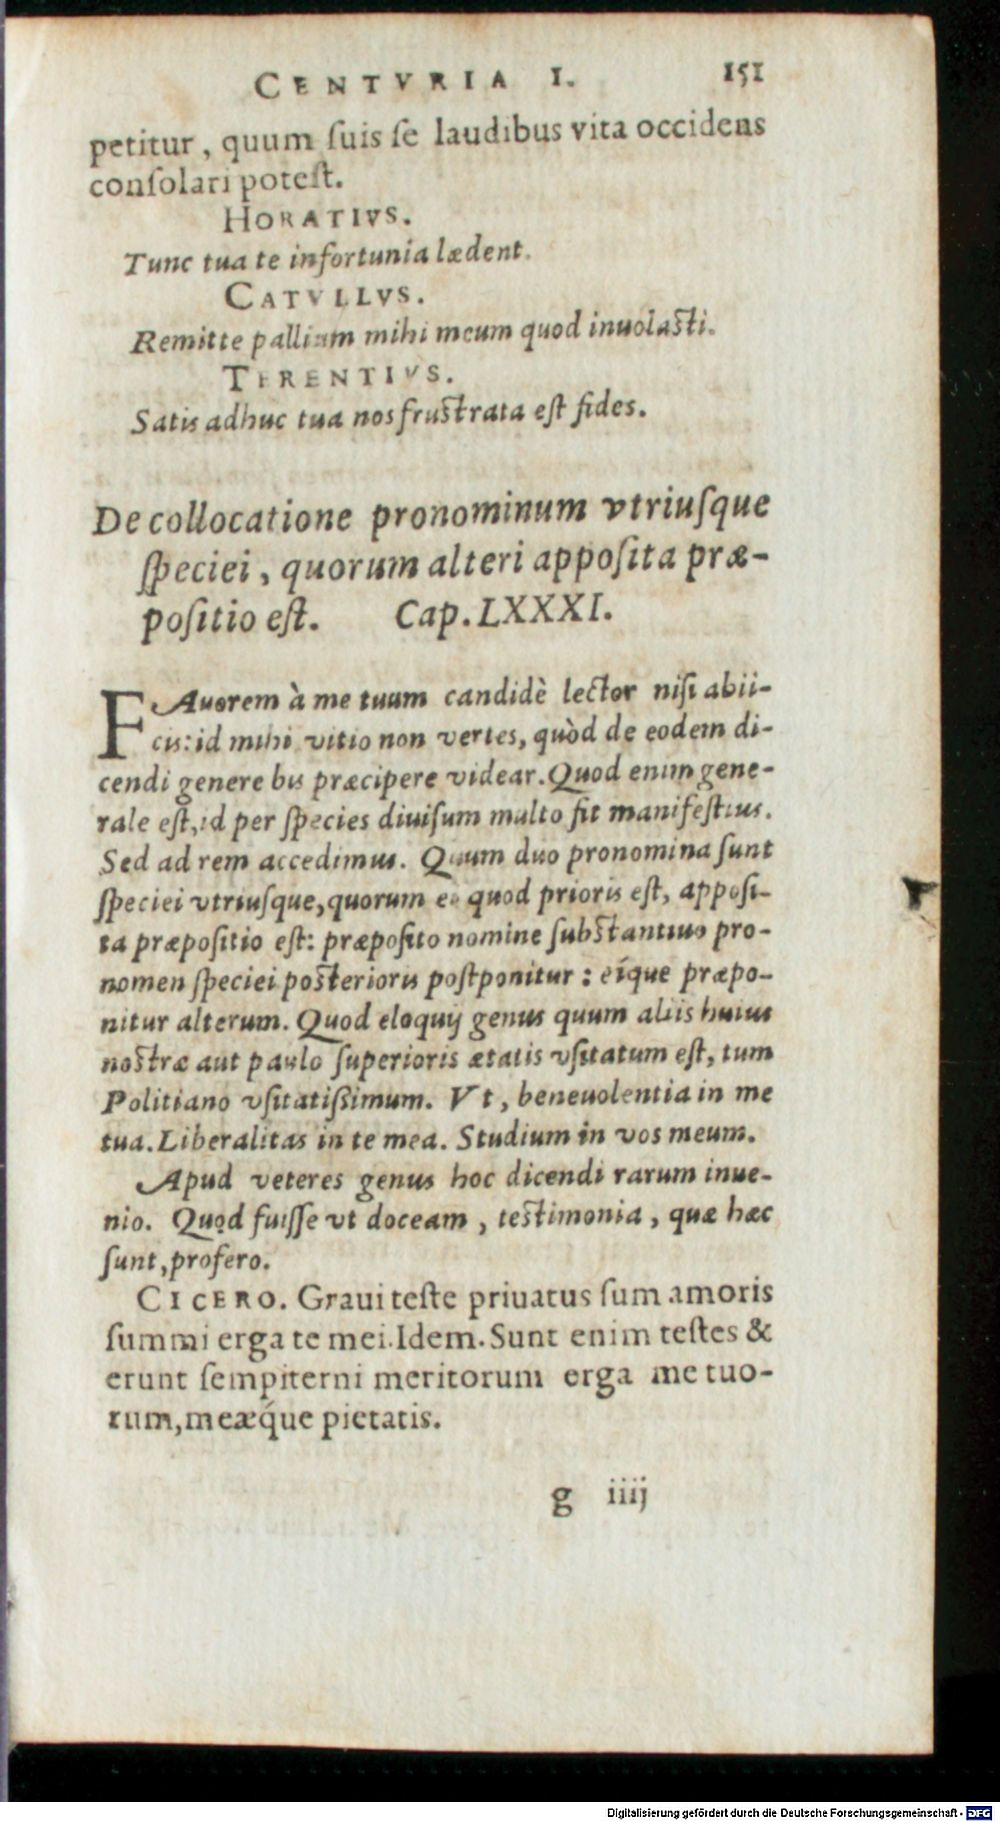 CENTVRIA I. 151
petitur, quum ſuis ſe laudibus vita occidens
conſolari poteſt.
HORATIVS.
Tunc tua te infortunia lædent.
CATVLLVS.
Remitte pallium mihi meum quod inuolaſti.
TERENTIVS.
Satis adhuc tua nos fruſtrata eſt fides.
De collocatione pronominum vtriuſque
ſpeciei, quorum alteri appoſita præ-
poſitio eſt. Cap. LXXXI.
FAuorem à me tuum candidè lector niſi abii-
cis: id mihi vitio non vertes, quòd de eodem di-
cendi genere bis præcipere videar. Quod enim gene-
rale eſt, id per ſpecies diuiſum multo fit manifeſtius.
Sed ad rem accedimus. Quum duo pronomina ſunt
ſpeciei vtriuſque, quorum ei quod prioris eſt, appoſi-
ta præpoſitio eſt: præpoſito nomine ſubſtantiuo pro-
nomen ſpeciei poſterioris poſtponitur: eíque præpo-
nitur alterum. Quod eloquij genus quum aliis huius
noſtræ aut paulo ſuperioris ætatis vſitatum eſt, tum
Politiano vſitatiſsimum. Vt, beneuolentia in me
tua. Liberalitas in te mea. Studium in vos meum.
Apud veteres genus hoc dicendi rarum inue-
nio. Quod fuiſſe vt doceam, teſtimonia, quæ hæc
ſunt, profero.
CICERO. Graui teſte priuatus ſum amoris
ſummi erga te mei. Idem. Sunt enim teſtes &
erunt ſempiterni meritorum erga me tuo-
rum, meæq́ue pietatis.
g iiij
Digitalisierung gefördert durch die Deutsche Forschungsgemeinschaft - DFG